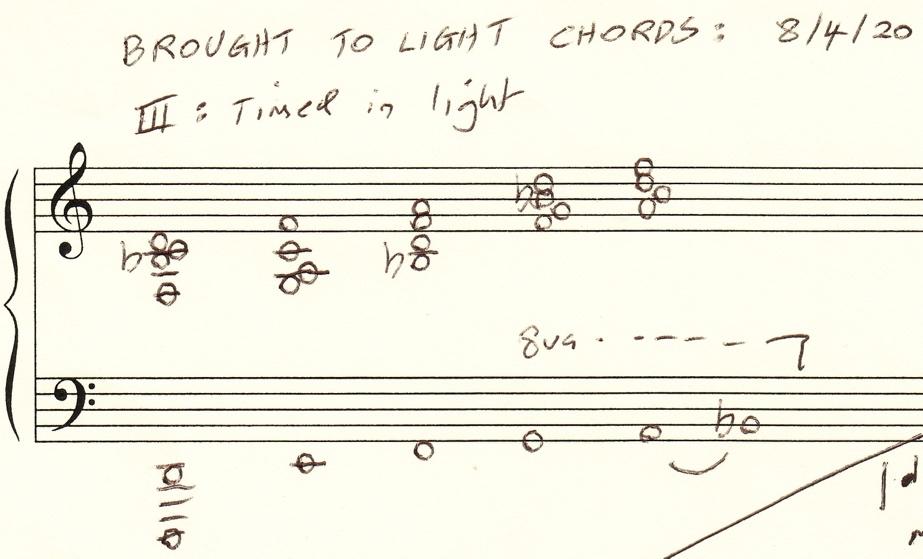 BROUGHT TO LIGHT CHORDS: 8/4/20
III: Timed in light
8va